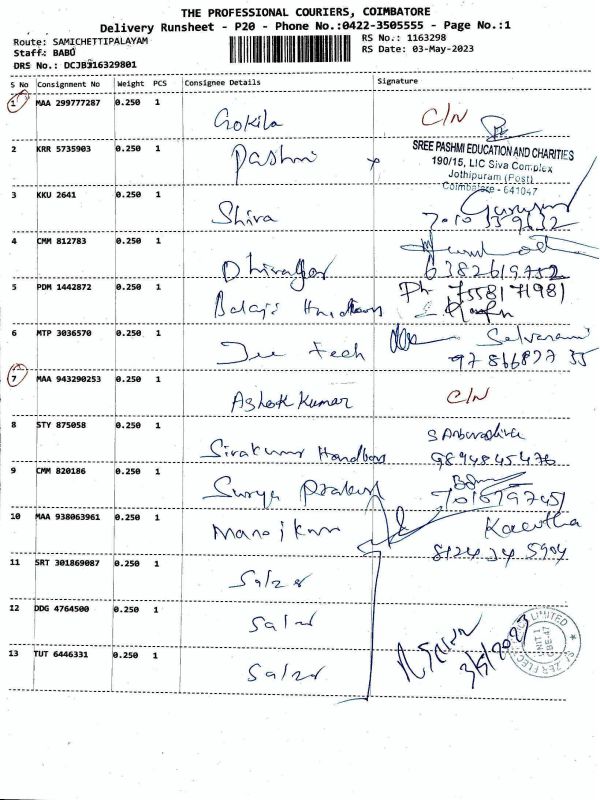 THE PROFESSIONAL COURIERS, COIMBATORE
Delivery Runsheet - P20 - Phone No.:0422-3505555 - Page No.:1
Route: SAMICHETTIPALAYAM RS No.: 1163298
Staff: BABU RS Date: 03-May-2023
DRS No.: DCJB316329801
S No Consignment No Weight PCS Consignee Details Signature
1 MAA 299777287 0.250 1
Gokila C/N
2 KRR 5735903 0.250 1
Pashmi
SREE PASHMI EDUCATION AND CHARITIES
190/15, LIC Siva Complex
Jothipuram (Post)
Coimbatore - 641047
3 KKU 2641 0.250 1
Shiva
4 CMM 812783 0.250 1
6382619752
5 PDM 1442872 0.250 1
Balaji Ph 7558171981
6 MTP 3036570 0.250 1
Tech Selvarani
7 MAA 943290253 0.250 1
Ashok Kumar C/N
8 STY 875058 0.250 1
Sivakumar 9894845476
9 CMM 820186 0.250 1
Surya
10 MAA 938063961 0.250 1
Manoj Kumar Kavitha
11 SRT 301869087 0.250 1
Salzer
12 DDG 4764500 0.250 1
Salzer
13 TUT 6446331 0.250 1
Salzer 3/5/2023